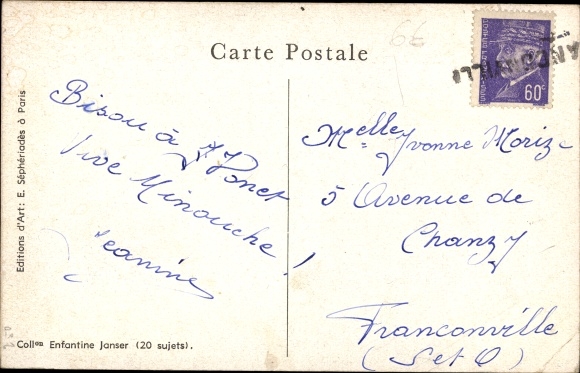 Carte Postale
60c
Bisou à Ponet
Vive Minouche !
Jeanine
Melle Yvonne Moriz
5 Avenue de
Chanzy
Franconville
(S et O)
Editions d'Art: E. Séphériadès à Paris
Collon Enfantine Janser (20 sujets).